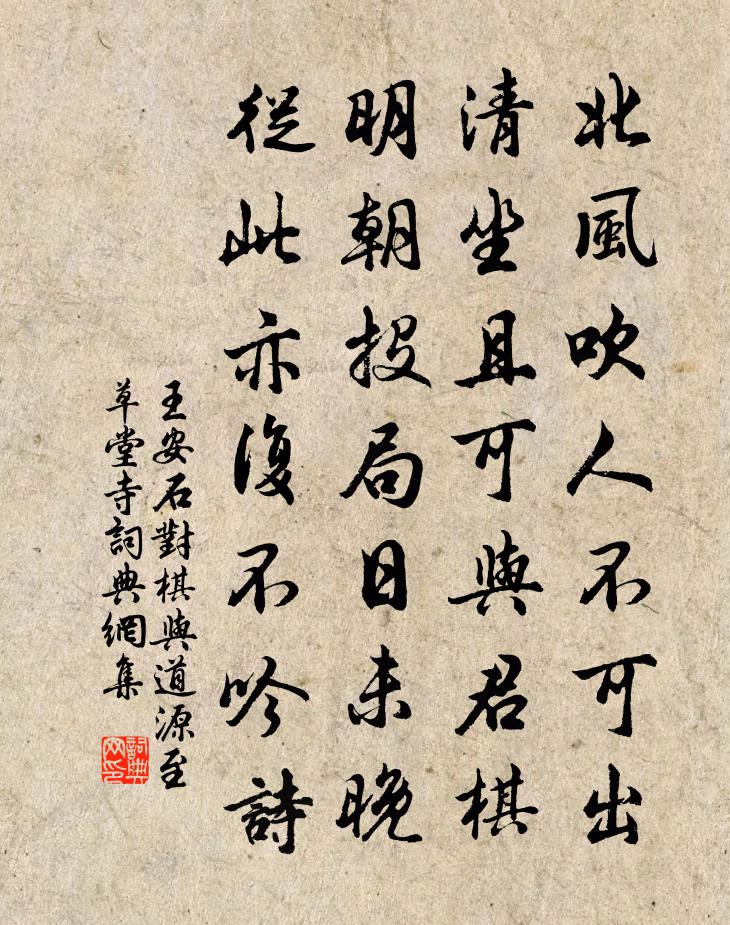 北風吹人不可出
清坐且可與君棋
明朝投局日未晚
從此亦復不吟詩
王安石對棋與道源至
草堂寺詞典網集
詞典
网印